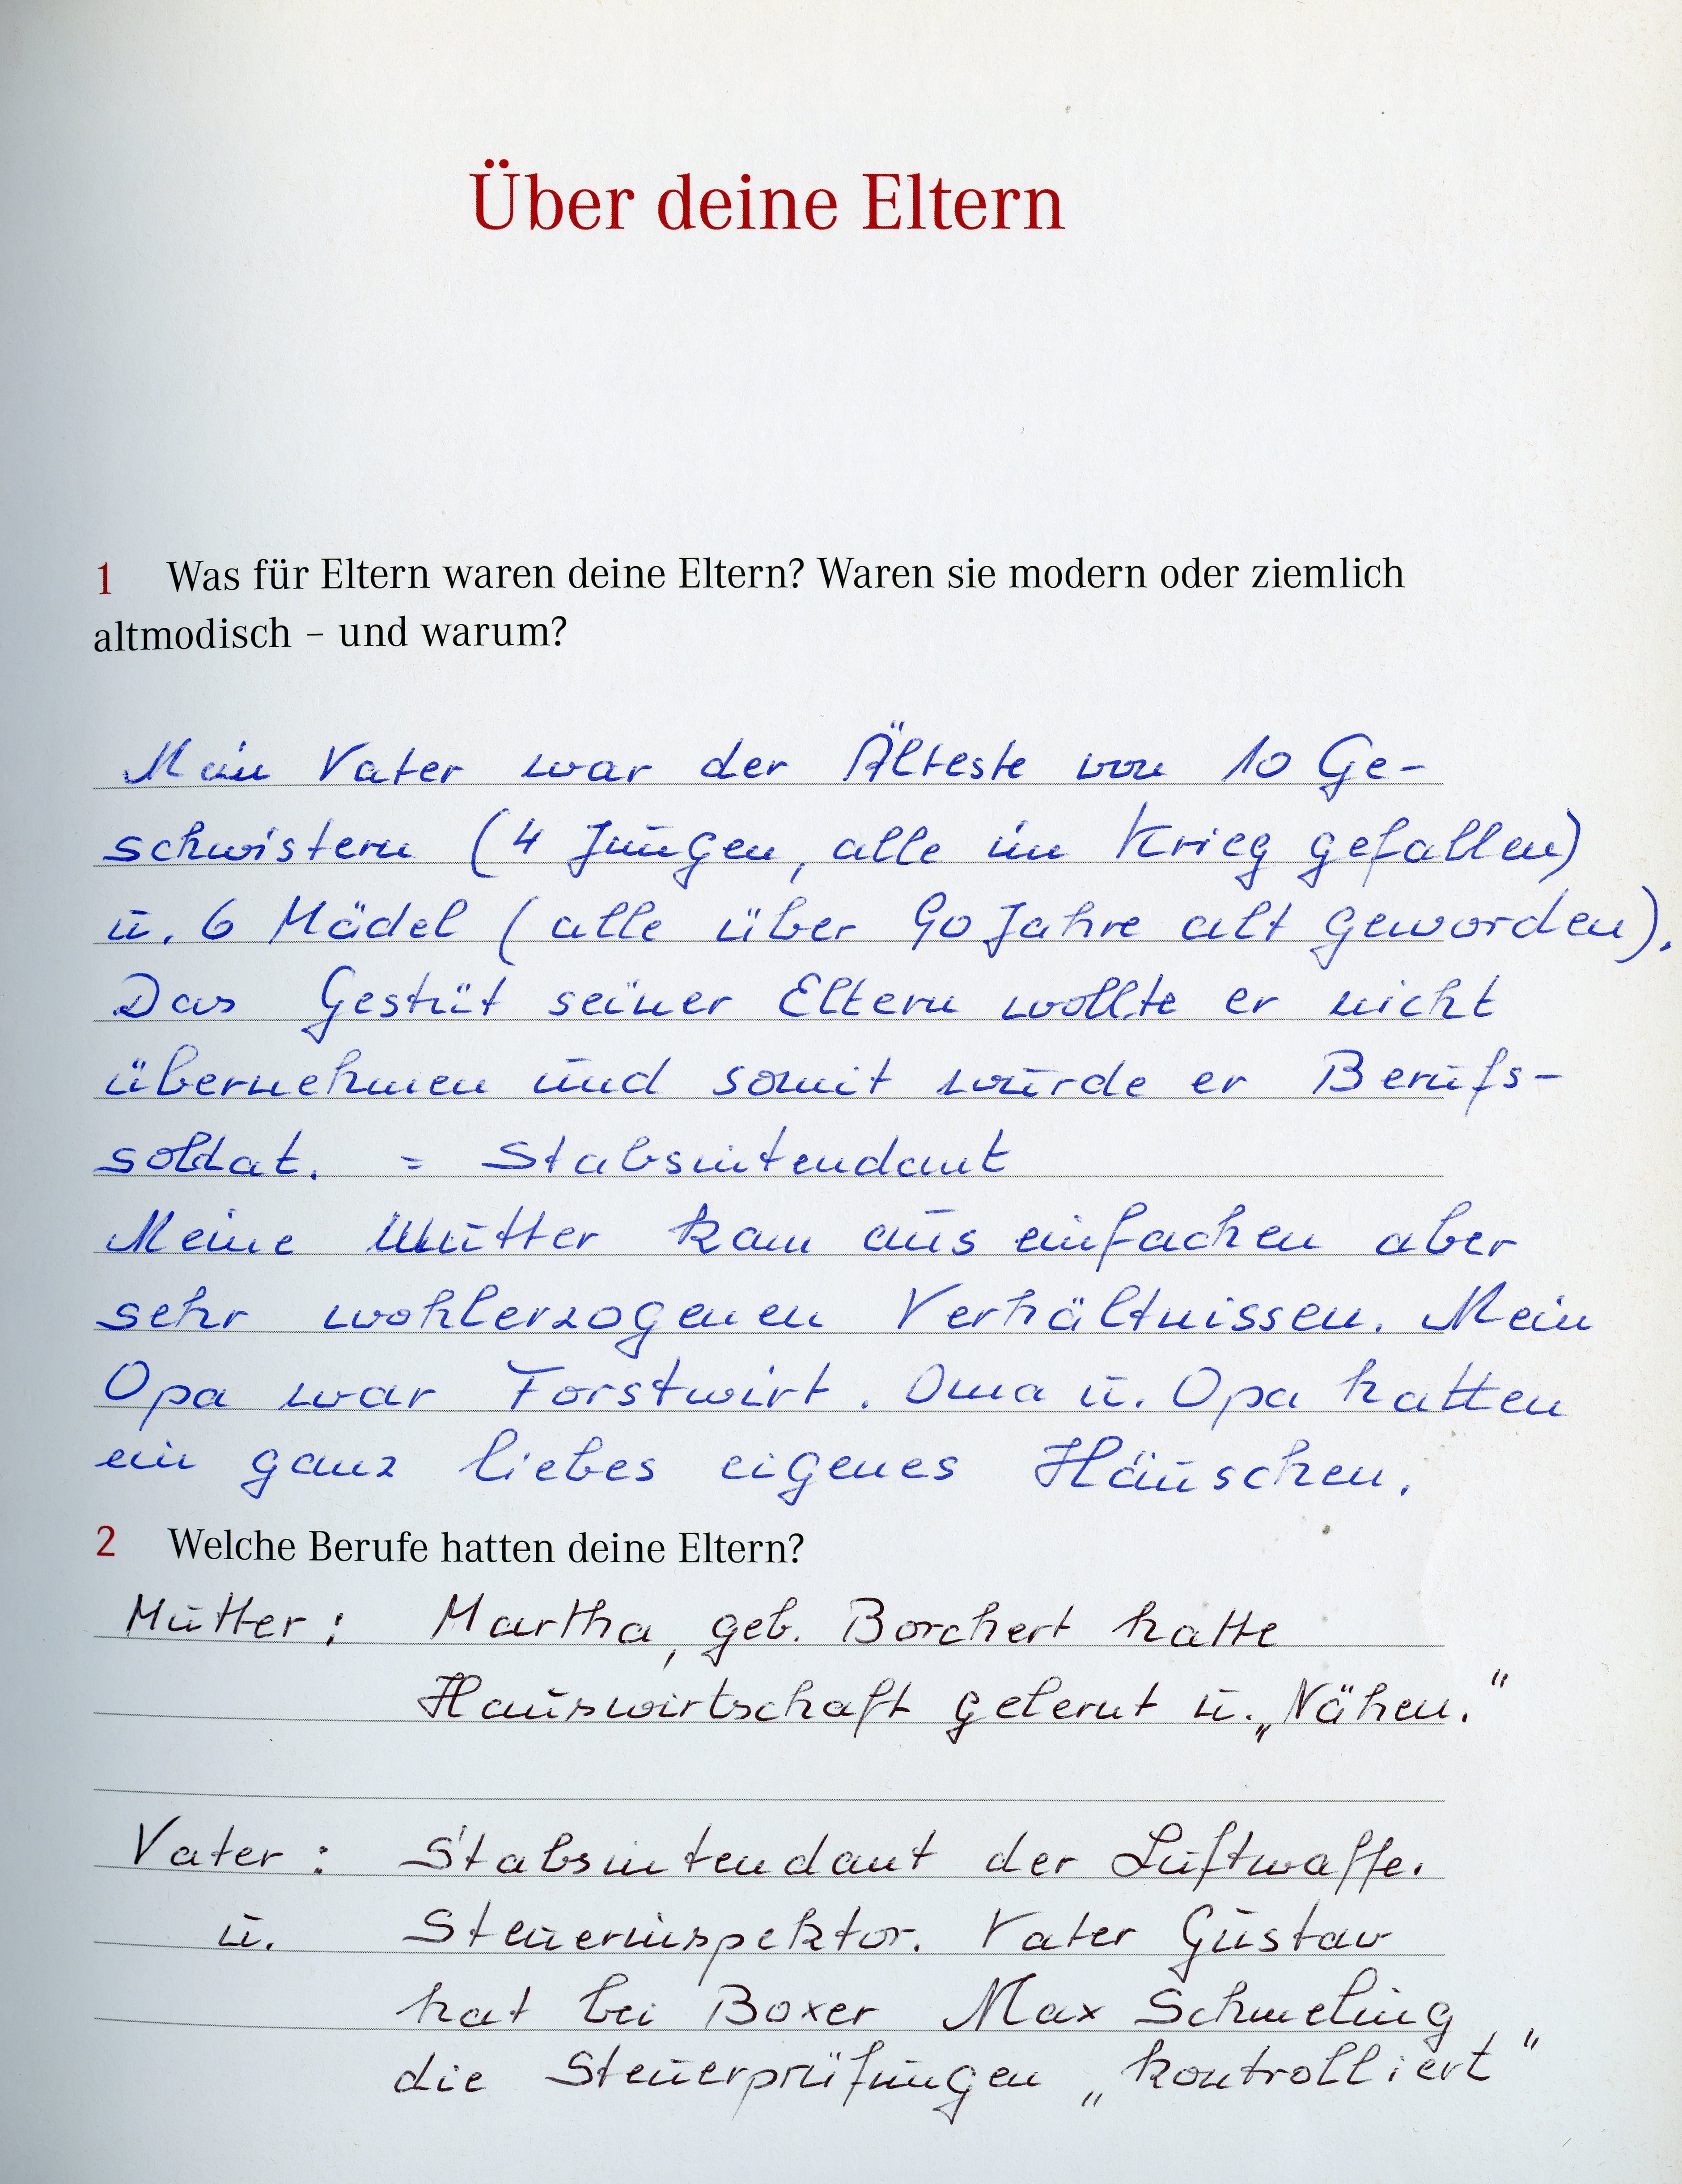 Über deine Eltern
1 Was für Eltern waren deine Eltern? Waren sie modern oder ziemlich
altmodisch – und warum?
Mein Vater war der Älteste von 10 Ge-
schwistern (4 Jungen, alle im Krieg gefallen)
u. 6 Mädel (alle über 90 Jahre alt geworden).
Das Gestüt seiner Eltern wollte er nicht
übernehmen und somit wurde er Berufs-
soldat. = Stabsintendant
Meine Mutter kam aus einfachen aber
sehr wohlerzogenen Verhältnissen. Mein
Opa war Forstwirt. Oma u. Opa hatten
ein ganz liebes eigenes Häuschen.
2 Welche Berufe hatten deine Eltern?
Mutter: Martha, geb. Borchert hatte
Hauswirtschaft gelernt u. „Nähen.“
Vater: Stabsintendant der Luftwaffe.
u. Steuerinspektor. Vater Gustav
hat bei Boxer Max Schmeling
die Steuerprüfungen „kontrolliert“